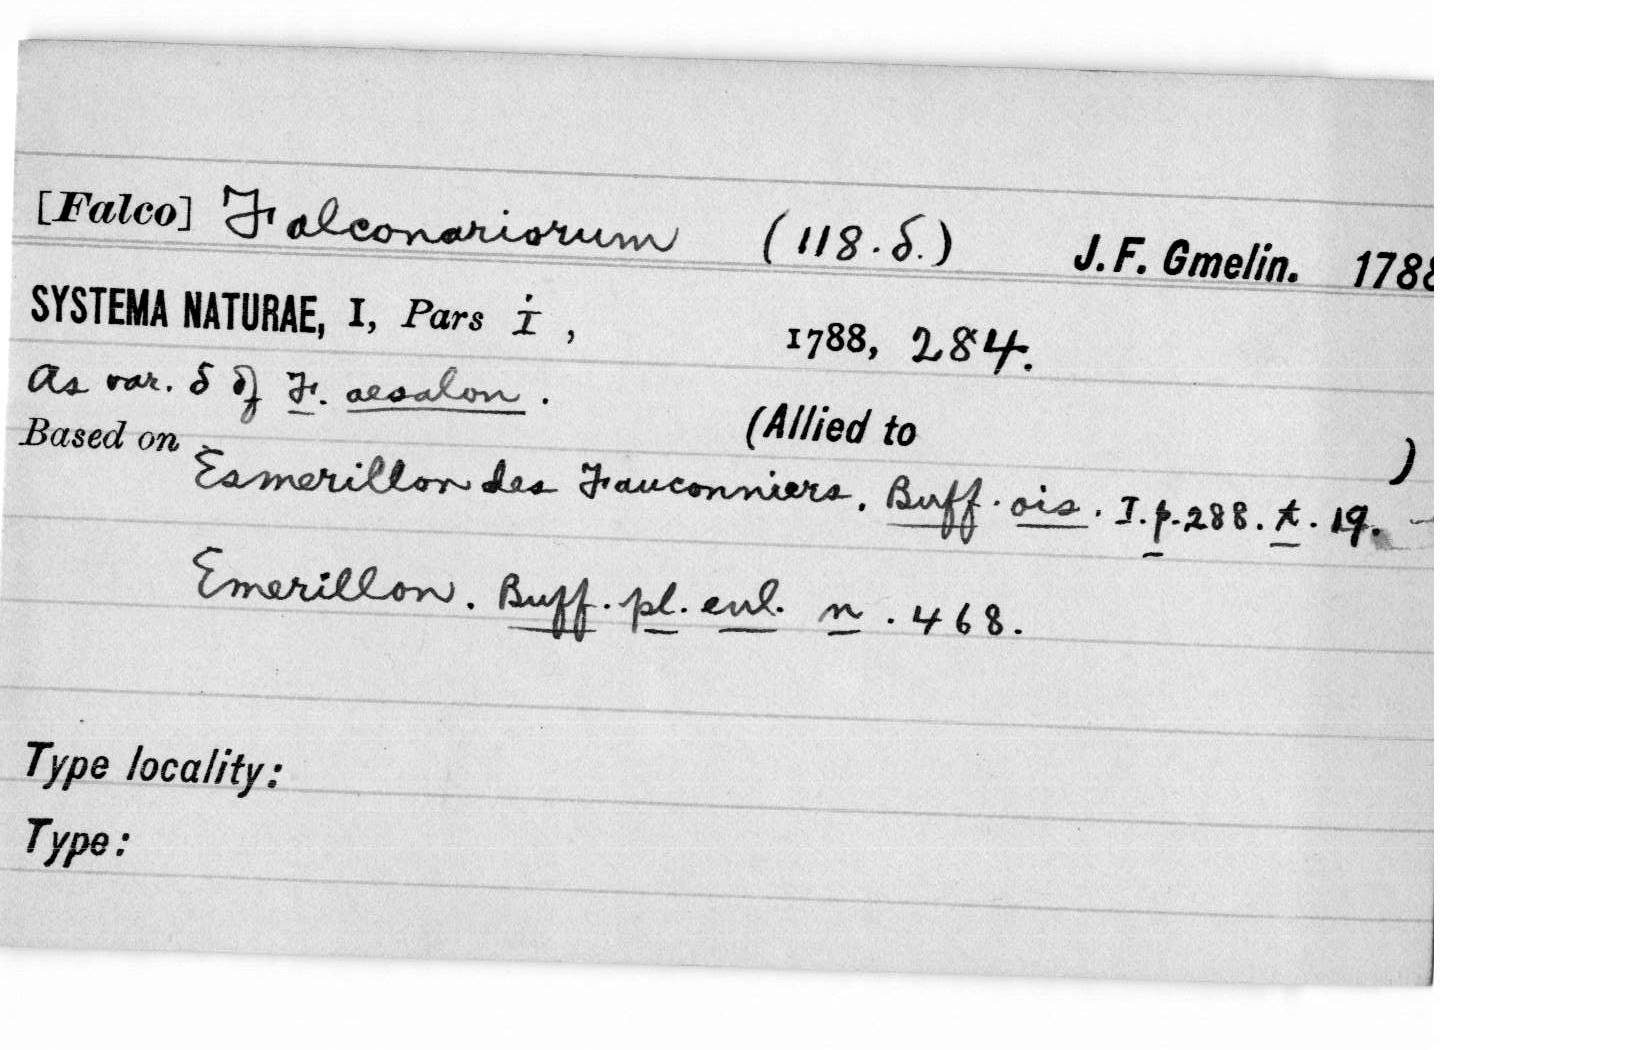 [Falco] Falconariorum (118.δ.) J. F. Gmelin. 1788
SYSTEMA NATURAE, I, Pars i, 1788, 284.
As var. δ of F. aesalon.
Based on (Allied to )
Esmerillon des Fauconniers. Buff. ois. I. p. 288. t. 19.
Emerillon. Buff. pl. enl. n. 468.
Type locality:
Type: